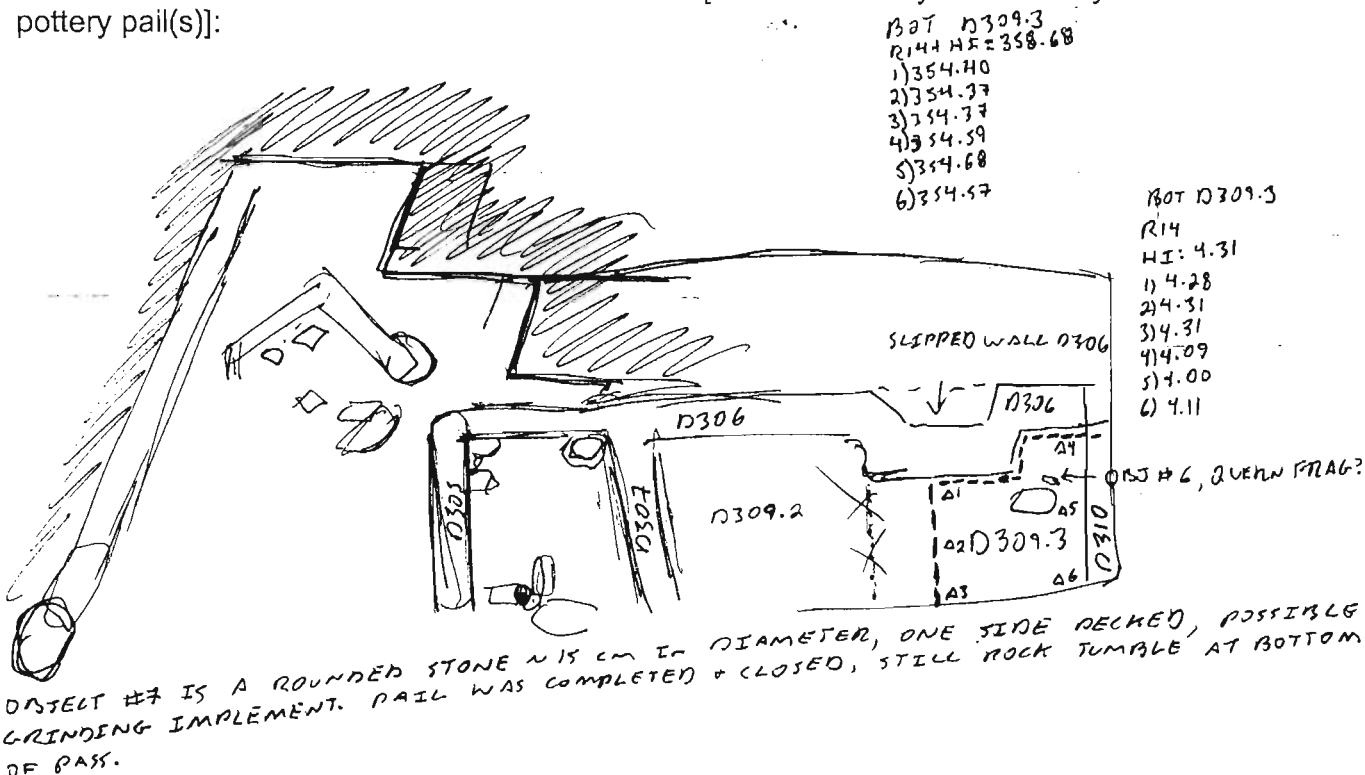 pottery pail(s)]:
BOT D309.3
R14+ HI=358.68
1)354.40
2)354.37
3)354.37
4)354.59
5)354.68
6)354.57
BOT D309.3
R14
HI: 4.31
1) 4.28
2)4.31
3)4.31
4)4.09
5)4.00
6) 4.11
SLIPPED WALL D306
D306
D306
Δ4
OBJ #6, QUERN FRAG?
D305
D307
D309.2
Δ1
Δ5
Δ2 D309.3
D310
Δ3
Δ6
OBJECT #7 IS A ROUNDED STONE ~15 cm In DIAMETER, ONE SIDE PECKED, POSSIBLE
GRINDING IMPLEMENT. PAIL WAS COMPLETED + CLOSED, STILL ROCK TUMBLE AT BOTTOM
OF PASS.